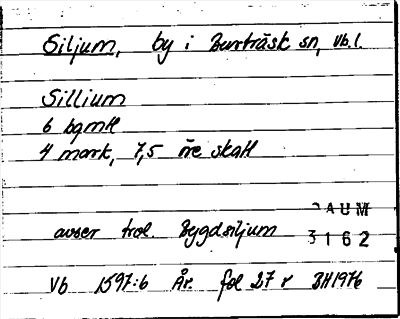 Siljum, by i Burträsk sn, Vb.l.
Sillium
6 bgmll
4 mark, 7,5 öre skatt
DAUM
3162
avser trol. Bygdsiljum
Vb 1597:6 År. fol 27 r BH1976